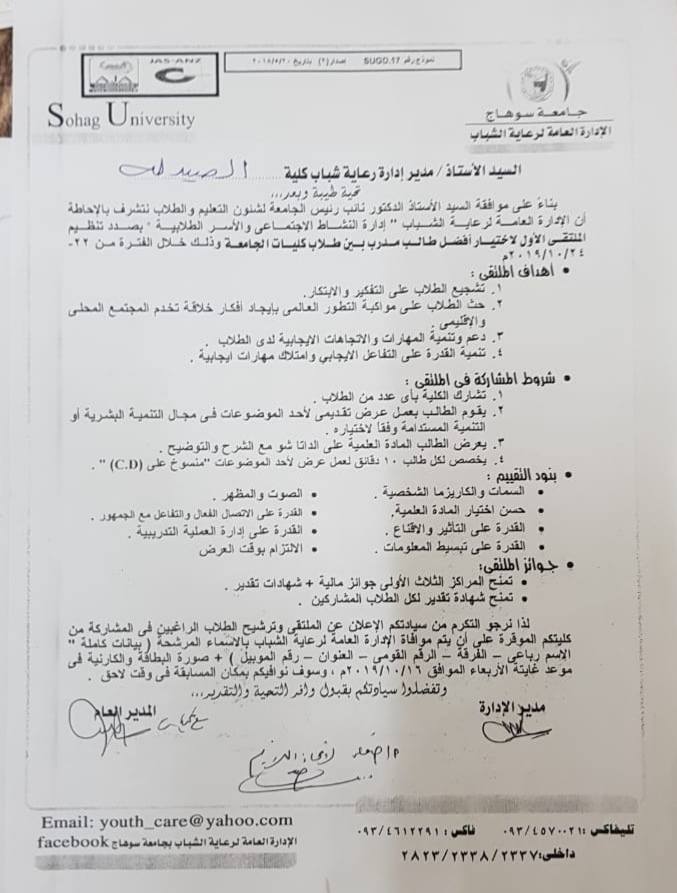 نموذج رقم SUGD.17 اصدار (٢) بتاريخ ٢٠١٨/٥/٢٠
JAS-ANZ
Sohag University
جامعة سوهاج
الإدارة العامة لرعاية الشباب
السيد الأستاذ / مدير إدارة رعاية شباب كلية الصيدلة
تحية طيبة وبعد...
بناءً على موافقة السيد الأستاذ الدكتور نائب رئيس الجامعة لشئون التعليم والطلاب نتشرف بالإحاطة
أن الإدارة العامة لرعاية الشباب " إدارة النشاط الاجتماعى والأسر الطلابية " بصدد تنظيم
الملتقى الأول لاختيار أفضل طالب مدرب بين طلاب كليات الجامعة وذلك خلال الفترة من ٢٢-
٢٠١٩/١٠/٢٤م
• أهداف الملتقى :
١. تشجيع الطلاب على التفكير والابتكار.
٢. حث الطلاب على مواكبة التطور العالمى بإيجاد أفكار خلاقة تخدم المجتمع المحلى
والإقليمى .
٣. دعم وتنمية المهارات والاتجاهات الايجابية لدى الطلاب .
٤. تنمية القدرة على التفاعل الايجابي وامتلاك مهارات ايجابية .
• شروط المشاركة فى الملتقى :
١. تشارك الكلية بأى عدد من الطلاب .
٢. يقوم الطالب بعمل عرض تقديمى لأحد الموضوعات فى مجال التنمية البشرية أو
التنمية المستدامة وفقاً لاختياره .
٣. يعرض الطالب المادة العلمية على الداتا شو مع الشرح والتوضيح .
٤. يخصص لكل طالب ١٠ دقائق لعمل عرض لأحد الموضوعات "منسوخ على (C.D) " .
• بنود التقييم :
• السمات والكاريزما الشخصية . • الصوت والمظهر .
• حسن اختيار المادة العلمية. • القدرة على الاتصال الفعال والتفاعل مع الجمهور .
• القدرة على التأثير والاقناع . • القدرة على إدارة العملية التدريبية .
• القدرة على تبسيط المعلومات . • الالتزام بوقت العرض
• جوائز الملتقى:
• تمنح المراكز الثلاث الأولى جوائز مالية + شهادات تقدير .
• تمنح شهادة تقدير لكل الطلاب المشاركين .
لذا نرجو التكرم من سيادتكم الإعلان عن الملتقى وترشيح الطلاب الراغبين فى المشاركة من
كليتكم الموقرة على أن يتم موافاة الإدارة العامة لرعاية الشباب بالأسماء المرشحة ( بيانات كاملة "
الإسم رباعى – الفرقة – الرقم القومى – العنوان – رقم الموبيل ) + صورة البطاقة والكارنية فى
موعد غايتة الأربعاء الموافق ٢٠١٩/١٠/١٦م ، وسوف نوافيكم بمكان المسابقة فى وقت لاحق .
وتفضلوا سيادتكم بقبول وافر التحية والتقدير...
مدير الإدارة
المدير العام
Email: youth_care@yahoo.com
الإدارة العامة لرعاية الشباب بجامعة سوهاج facebook
تليفاكس : ٠٩٣/٤٥٧٠٠٢١ فاكس : ٠٩٣/٤٦١٢٢٩١
داخلى: ٢٨٢٣/٢٣٣٨/٢٣٣٧